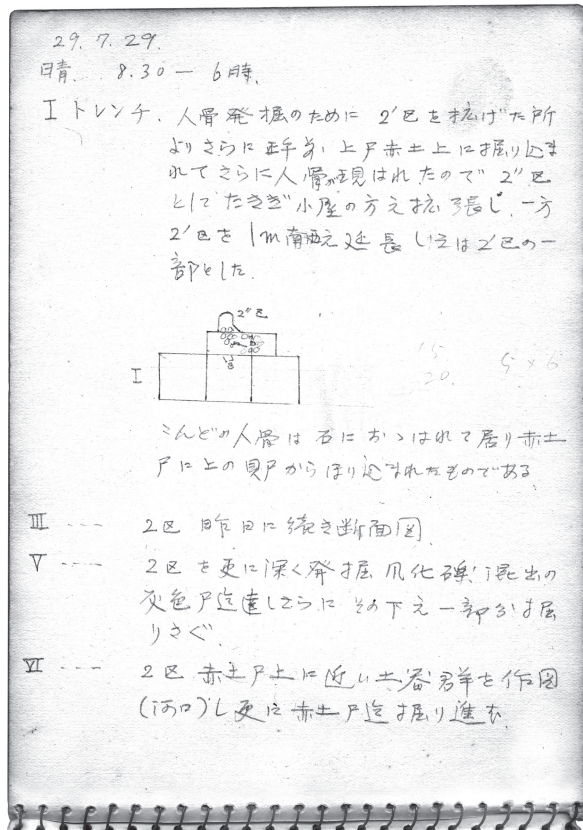 29.7.29.
晴. 8.30 — 6時.
I トレンチ. 人骨発掘のために 2'区を拡げた所
よりさらに 上戸赤土上に掘り込ま
れてさらに人骨が現はれたので 2"区
としてたきぎ小屋の方え拡張し、一方
2'区を 1m南西え延長し之は2'区の一
部とした.
2"区
I
15
20.
5×6
こんどの人骨は石におゝはれて居り赤土
戸に上の貝戸からほり込まれたものである
III ---- 2区 昨日に続き断面図.
V ---- 2区を更に深く発掘 風化礫混出の
灰色戸迄達しさらにその下え一部分掘
りさぐ.
VI ---- 2区 赤土戸上に近い土器群を作図
(河口)し更に赤土戸迄掘り進む.